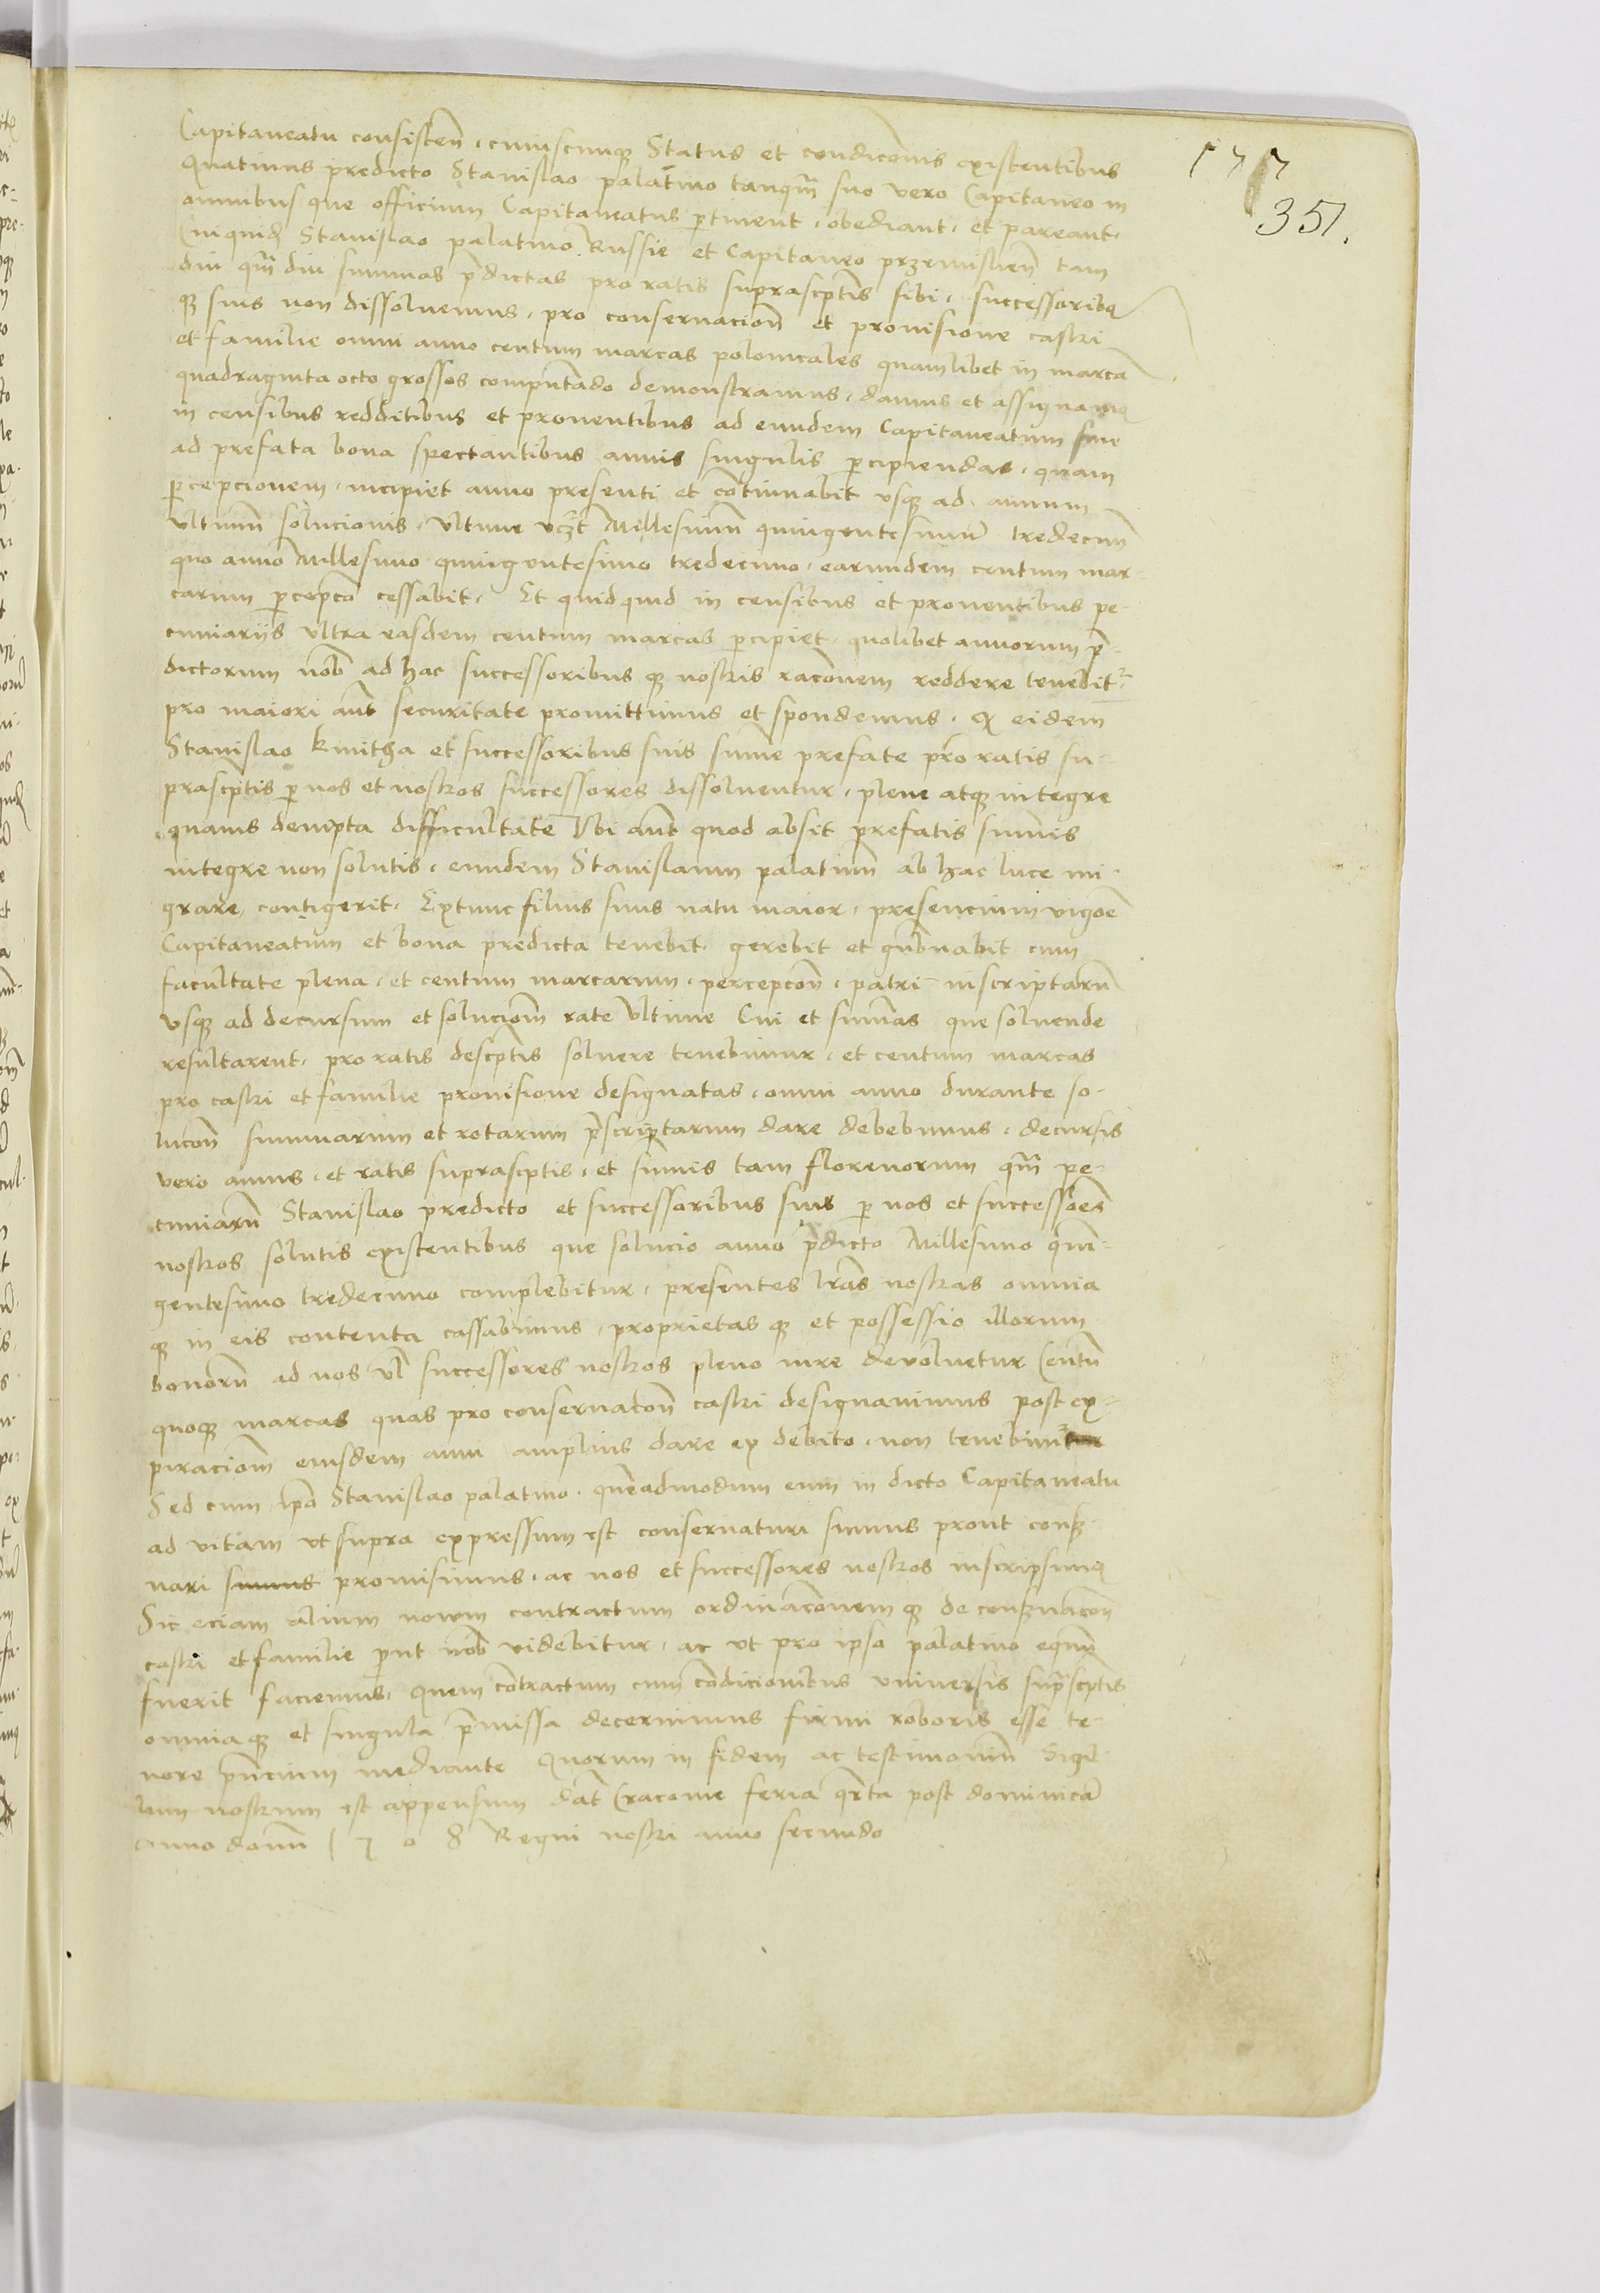 177
351.
Capitaneatu consisteñ. cuiuscunqȝ Status et condicõnis existentibus
Quatinus predicto Stanislao palatino tanqm̃ suo vero Capitaneo in
omnibus que officium Capitaneatus ꝑtinent. obediant. et pareant.
Cuiquidẽ Stanislao palatino Russie et Capitaneo przemislieñ tam
diu qm̃ diu summas p̃dictas pro ratis suprasc̃ptis sibi. successoribꝰ
qȝ suis non dissoluemus. pro conseruacioñ et prouisione castri
et familie omni anno centum marcas polonicales quamlibet in marcã
quadraginta octo grossos computãdo demonstramus. damus et assignamꝰ
in censibus redditibus et prouentibus ad eundem Capitaneatum siue
ad prefata bona spectantibus annis singulis ꝑcipiendas. quam
ꝑcepcionem. incipiet anno presenti et cõtinuabit vsqȝ ad annum
vltimũ solucionis. vltime vcȝt Millesimũ quingentesimum tredecimũ
quo anno Millesimo quingentesimo tredecimo. earundem centum mar
carum ꝑcepcõ cessabit. Et quidquid in censibus et prouentibus pe-
cuniarijs vltra easdem centum marcas ꝑcipiet. quolibet annorum p̃-
dictorum nob̃ ad hac successoribus qȝ nostris racõnem reddere tenebit᷑
pro maiori aũt securitate promittimus et spondemus. Qꝫ eidem
Stanislao kmitha et successoribus suis sum̃e prefate pro ratis su-
prasc̃ptis ꝑ nos et nostros successores dissoluentur. plene atqȝ integre
quauis dempta difficultate Vbi aũt quod absit prefatis sum̃is
integre non solutis. eundem Stanislaum palatinũ ab hac luce mi-
grare contigerit. Extunc filius suus natu maior. presencium vigoẽ
Capitaneatum et bona predicta tenebit. gerebit et gub̃nabit cum
facultate plena. et centum marcarum. percepcõñ. patri inscriptarũ
vsqȝ ad decursum et solucioñm rate vltime Cui et sum̃as que soluende
resultarent. pro ratis desc̃ptis soluere tenebimur. et centum marcas
pro castri et familie prouisione designatas. omni anno durante so-
lucõñ summarum et rotarum p̃scriptarum dare debebimus. decursis
vero annis. et ratis suprasc̃ptis. et sum̃is tam florenorum qm̃ pe-
cuniarũ Stanislao predicto et successoribus suis ꝑ nos et successões
nostros solutis existentibus que solucio anno p̃dicto Millesimo quin-
gentesimo tredecimo complebitur. presentes lr̃as nostras omnia
qȝ in eis contenta cassabimus. proprietas qȝ et possessio illorum
bonorũ ad nos vl̃ successores nostros pleno iure deuoluetur Centũ
quoqȝ marcas quas pro conseruacõñ castri designauimus post ex-
piracioñm eiusdem anni amplius dare ex debito. non tenebimur
Sed cum ip̃o Stanislao palatino. quẽadmodum eum in dicto Capitaneatu
ad vitam vt supra expressum est conseruaturi sumus prout conß-
uari sumus promisimus. ac nos et successores nostros inscripsimꝰ
Sic eciam alium nouum contractum ordinacõnem qȝ de conßuacõñ
castri et familie ꝓut nob̃ videbitur. ac vt pro ipso palatino equũ
fuerit faciemus. Quem cõtractum cum cõdicionibus vniuersis sup̃sc̃ptis
omniaqȝ et singula p̃missa decernimus firmi roboris esse te-
nore p̃ncium mediante Quorum in fidem ac testimoniũ Sigil-
lum nostrum est appensum dat̃ Cracouie feria qr̃ta post dominicã
anno domĩ 1 5 0 8 Regni nostri anno secundo